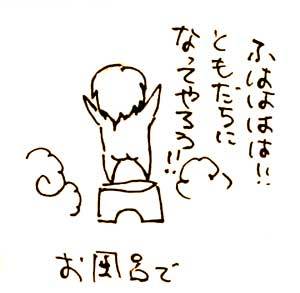 ふはははは!!
ともだちに
なってやろう!!
お風呂で